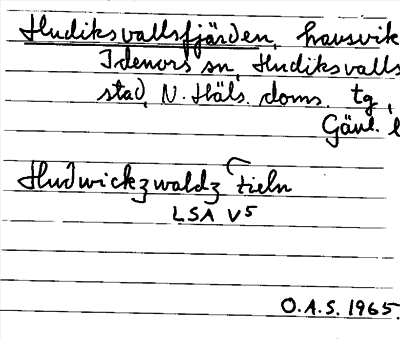 Hudiksvallsfjärden, havsvik
Idenors sn, Hudiksvalls
stad, N. Häls. doms. tg,
Gävl. l
Hudwickzwaldz fieln
LSA V5
O.A.S. 1965.